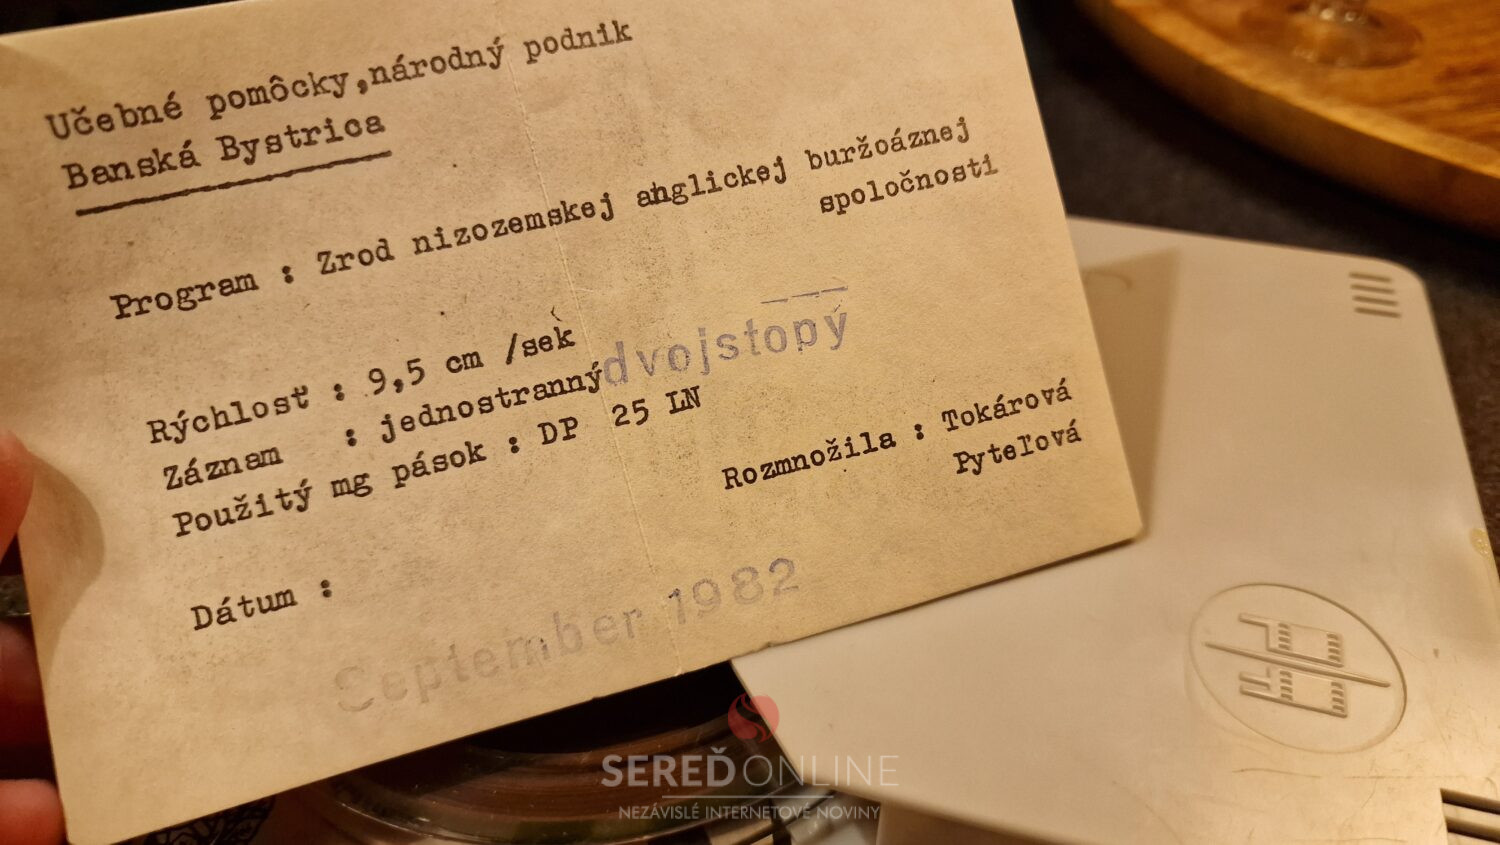 Učebné pomôcky,národný podnik
Banská Bystrica
Program : Zrod nizozemskej anglickej buržoáznej
spoločnosti
Rýchlosť : 9,5 cm /sek
Záznam : jednostranný dvojstopý
Použitý mg pások : DP 25 LN
Rozmnožila : Tokárová
Pyteľová
Dátum :
September 1982
SEREĎONLINE
NEZÁVISLÉ INTERNETOVÉ NOVINY